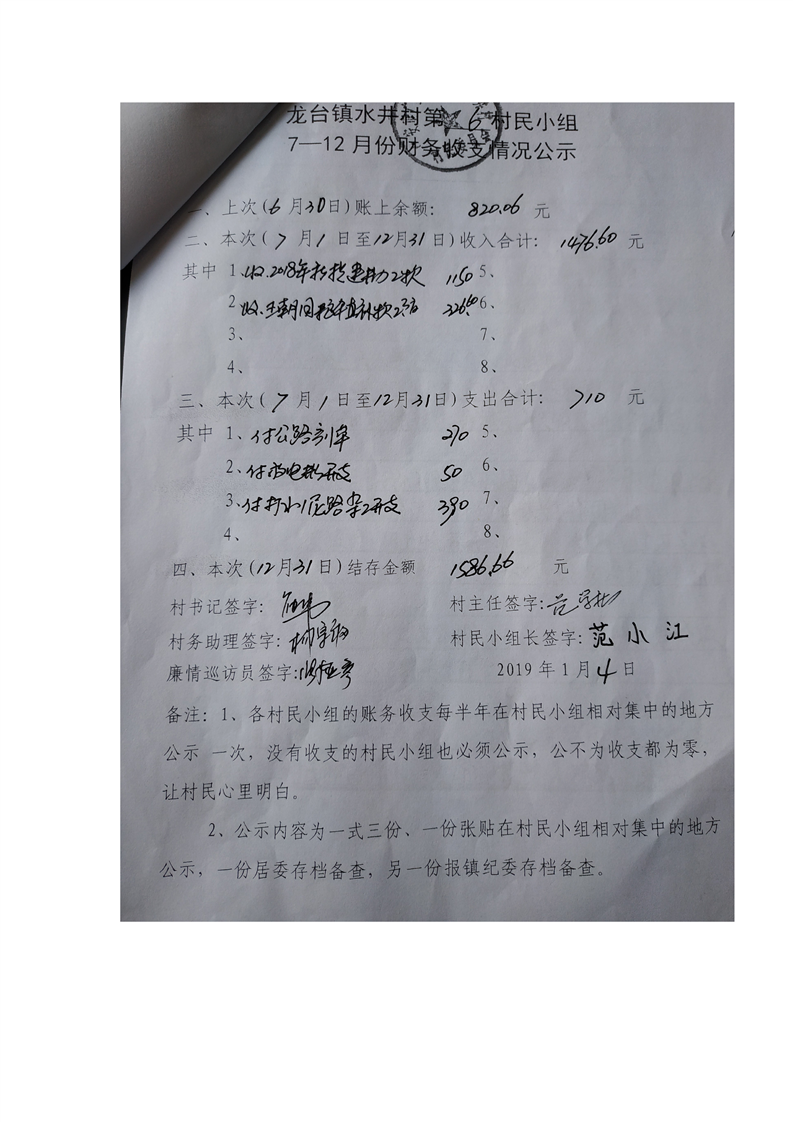 龙台镇水井村第 6 村民小组
7—12月份财务收支情况公示
一、上次(6月30日)账上余额: 820.06 元
二、本次(7月1日至12月31日)收入合计: 1476.60 元
其中 1、收2018年 款 1150 5、
2、收 款 326.60 6、
3、 7、
4、 8、
三、本次(7月1日至12月31日)支出合计: 710 元
其中 1、付公路 270 5、
2、付 开支 50 6、
3、付 水 路 开支 390 7、
4、 8、
四、本次(12月31日)结存金额 1586.66 元
村书记签字: 村主任签字:
村务助理签字: 村民小组长签字: 范小江
廉情巡访员签字: 2019年1月4日
备注: 1、各村民小组的账务收支每半年在村民小组相对集中的地方
公示 一次,没有收支的村民小组也必须公示,公不为收支都为零,
让村民心里明白。
2、公示内容为一式三份、一份张贴在村民小组相对集中的地方
公示,一份居委存档备查,另一份报镇纪委存档备查。